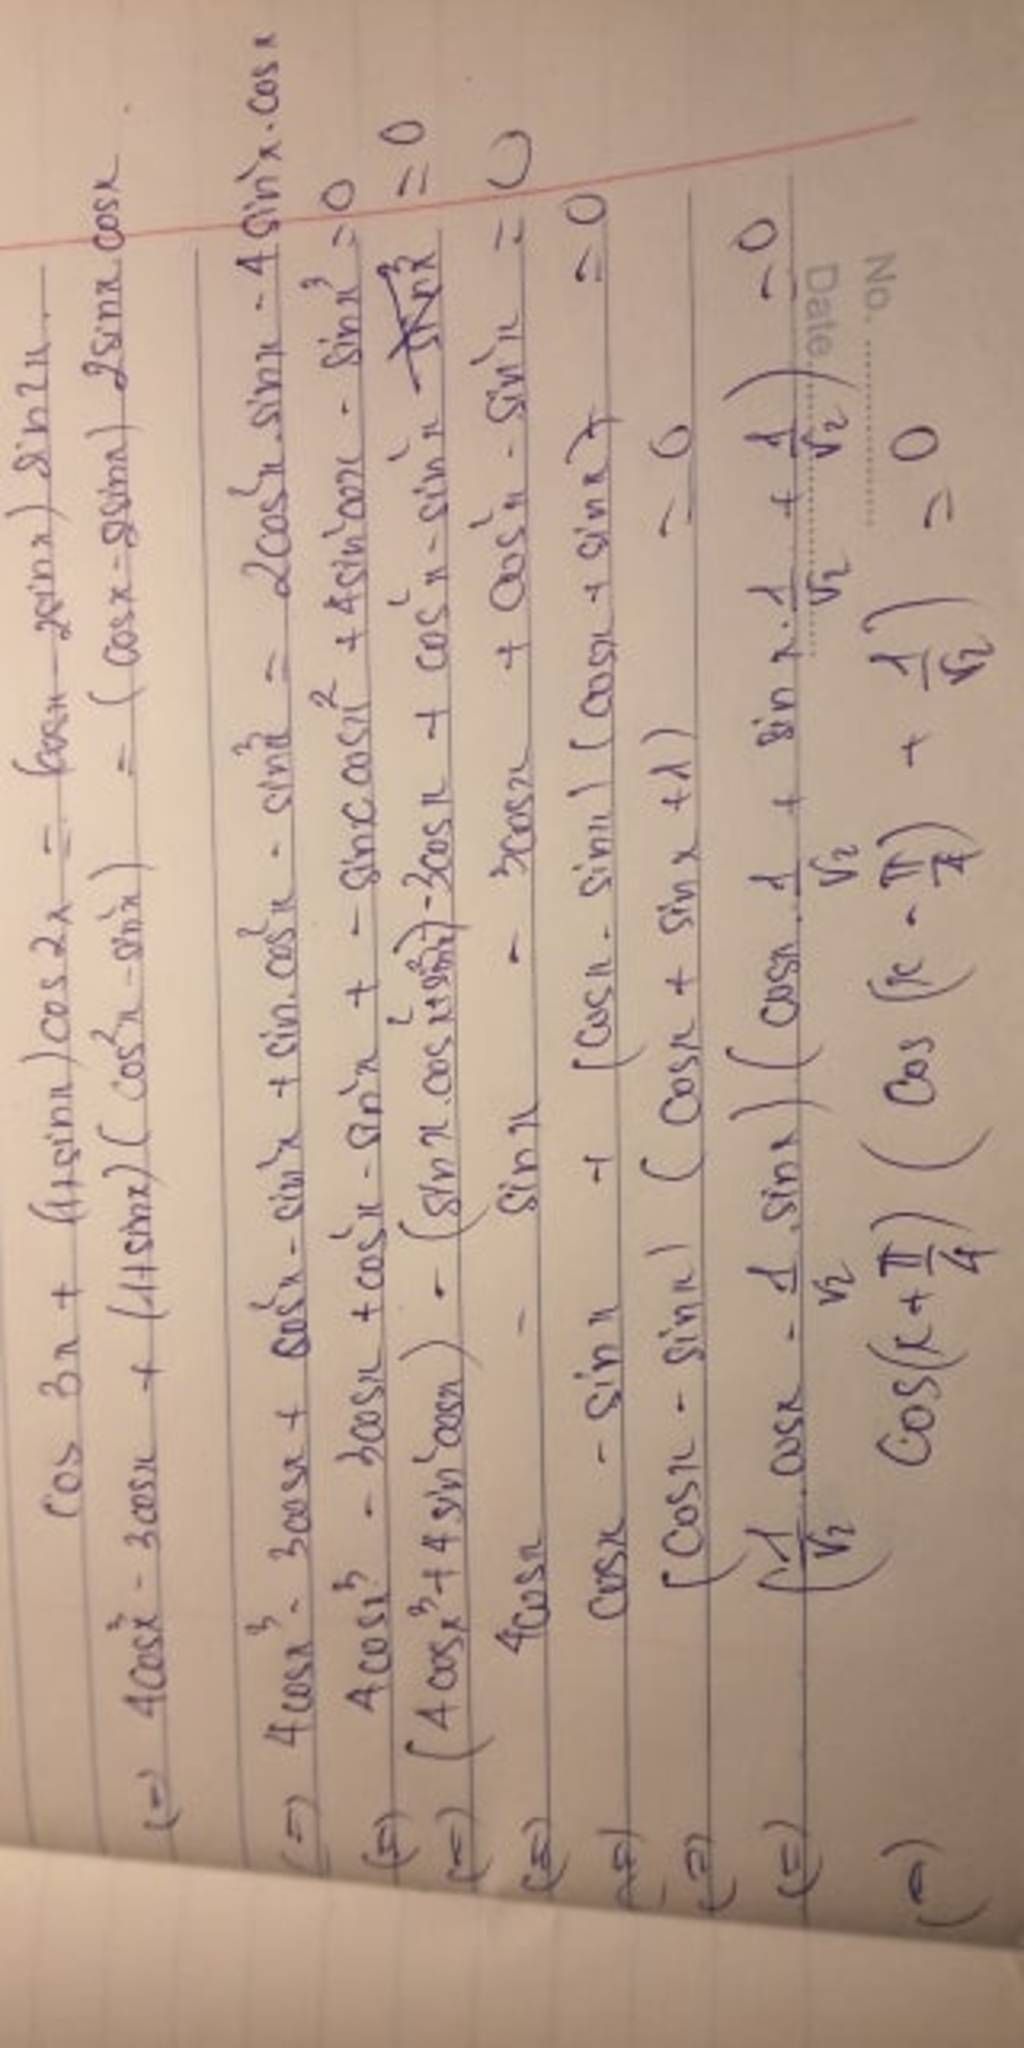 cos 3x + (1+sinx) cos 2x = (cosx - 2sinx) sin2x.
(=) 4cos³x - 3cosx + (1+sinx) (cos²x - sin²x) = (cosx - 2sinx) 2sinx cosx
(=) 4cosx³ - 3cosx + cos²x - sin²x + sin.cos²x - sin³x = 2cos²x.sinx - 4 sin²x.cosx
(=) 4cosx³ - 3cosx + cos²x - sin²x + - sinx cosx² + 4sin²cosx - sinx³ = 0
(=) (4cosx³ + 4sin²cosx) - (sinx.cos²x + sin³x) - 3cosx + cos²x - sin²x = 0
(=) 4cosx - sinx - 3cosx + cos²x - sin²x = 0
(=) cosx - sinx + (cosx - sinx) (cosx + sinx) = 0
(=) (cosx - sinx) (cosx + sinx + 1) = 0
(=) (1/√2 . cosx - 1/√2 . sinx) (cosx . 1/√2 + sinx . 1/√2 + 1/√2) = 0
(=) cos(x + π/4) (cos (x - π/4) + 1/√2) = 0
No.
Date